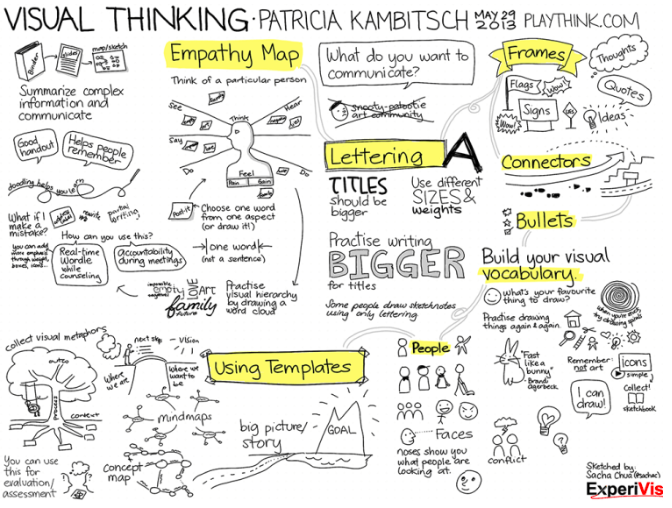 VISUAL THINKING · PATRICIA KAMBITSCH MAY 29 2013 PLAYTHINK.COM
Binder
map/sketch
Summarize complex
information and
communicate
Good
handout
Helps people
remember
doodling helps
What if I
make a
mistake?
partial
writing
you can add
more emphasis
through weight,
boxes, icons...
How can you use this?
Real-time
Wordle
while
counseling
Accountability
during meetings
Empathy Map
Think of a particular person
See
Think
Hear
Say
Feel
Pain
Gain
Do
Do
Post-it
Choose one word
from one aspect
(or draw it!)
one word
(not a sentence)
empty
LOVE
ART
family
Practise
visual hierarchy
by drawing a
word cloud
What do you want to
communicate?
snooty-patootie
art community
Lettering A
TITLES
should be
bigger
Use different
SIZES &
weights
Practise writing
BIGGER
for titles
Some people draw sketchnotes
using only lettering
Frames
Thoughts
Flags
Wow!
Quotes
Signs
Wow!
Ideas
Connectors
Bullets
Build your visual
vocabulary.
What's your favourite
thing to draw?
Practise drawing
things again & again.
"Fast
like a
bunny"
- Brandy
Agerbeck
Remember:
not art
icons
simple
Collect!
sketchbook
I can
draw!
collect visual metaphors
context
You can use
this for
evaluation/
assessment
next step
vision
Where
we are
Where we
want to
be
mindmaps
concept
map
Using Templates
big picture/
story
GOAL
People
Faces
noses show you
what people are
looking at.
conflict
Sketched by:
Sacha Chua (@sachac)
ExperiVis